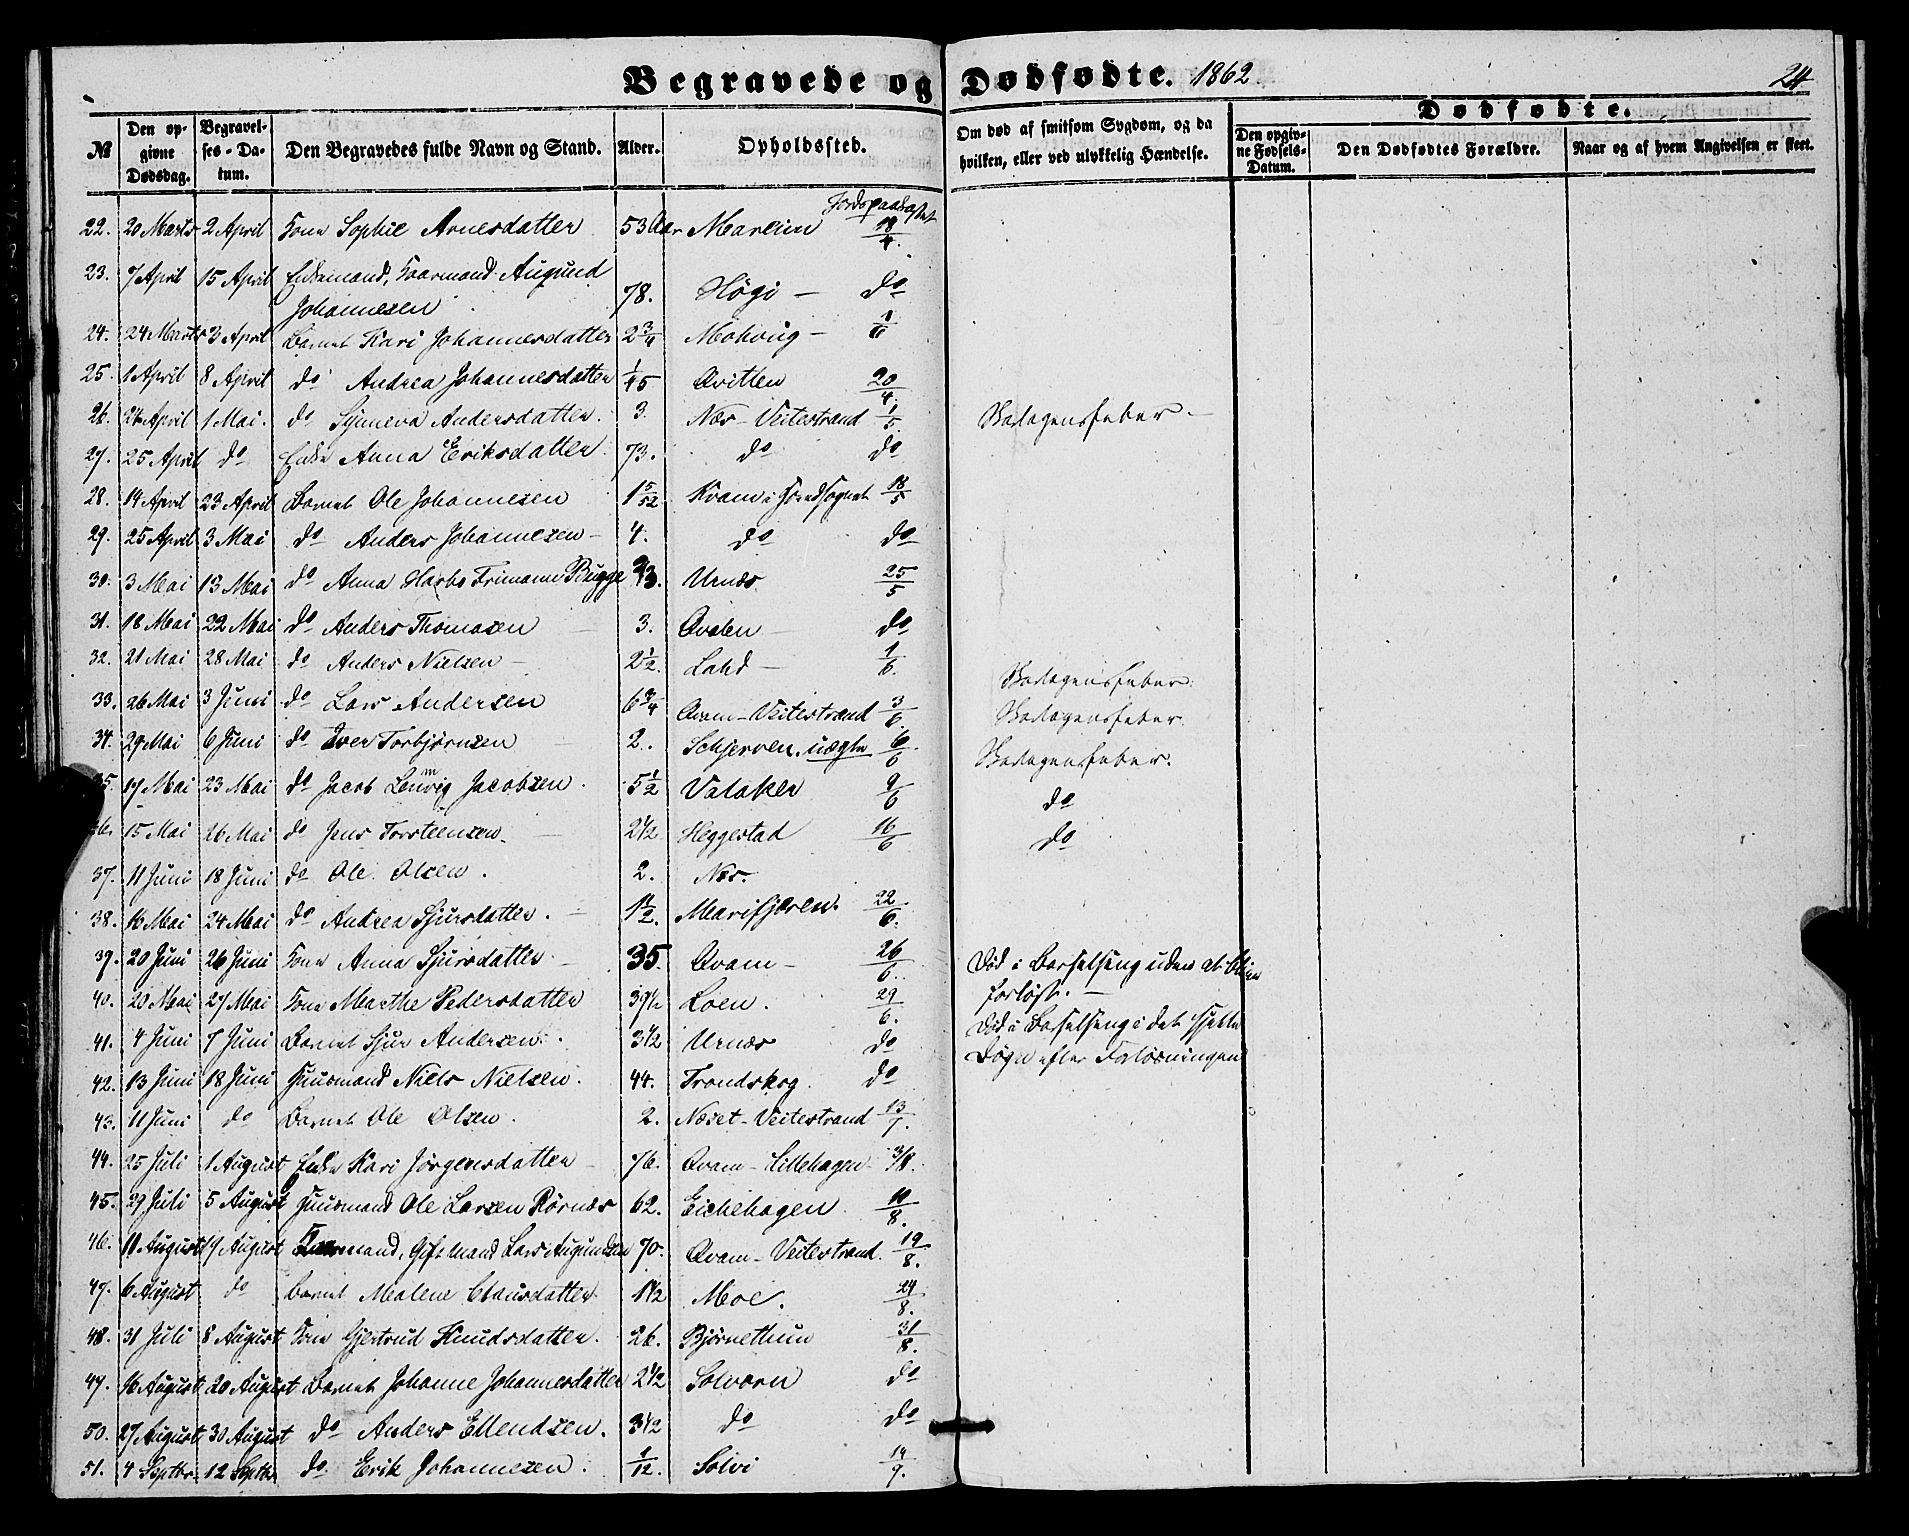 Begravede og Dødfødte. 1862. 24
Dødfødte.
№ Den opgivne Dødsdag. Begravelses-Datum. Den Begravedes fulde Navn og Stand. Alder. Opholdssted. Om død af smitsom Sygdom, og da hvilken, eller ved ulykkelig Hændelse. Den opgivne Fødsels-Datum. Den Dødfødtes Forældre. Naar og af hvem Angivelsen er skeet.
Jordpaakastet
22. 20 Marts 2 April Kone Sophie Arnesdatter 53 Aar Mareim 18/4.
23. 7 April 15 April Enkemand, Kaarmand Augund
Johannesen 78. Høgi – do
24. 24 Marts 3 April Barnet Kari Johannesdatter 2 3/4 Mohvug –
25. 1 April 8 April do Andrea Johannesdatter Qvitten 20/4.
26. 24 April 1 Mai. do Synneva Andersdatter. 3. Næs-Veitestrand 1/5. Barlagensfeber.
27. 25 April do Enke Anna Eriksdatter. 73. do do
28. 14 April 23 April Barnet Ole Johannesen 1 5/52 Kvam i 18/5
29. 25 April 3 Mai do Anders Johannesen – 4. do do
30. 3 Mai 13 Mai do Anna Harbo Frimann Bugge Urnæs 25/5
31. 18 Mai 22 Mai do Anders Thomasen 3. Qvalen do
32. 21 Mai 28 Mai do Anders Nielsen – 2 1/2. Lahd – 1/6. Barlagensfeber.
33. 26 Mai 3 Juni do Lars Andersen 6 3/4 Qvam-Veitestrand 3/6. Barlagensfeber.
34. 29 Mai 6 Juni do Iver Torbjørnsen 2. Schjerven, 6/6. Barlagensfeber.
35. 17 Mai 23 Mai do Jacob Lemvig Jacobsen. 5 1/2 Valaker 9/6 do
36. 15 Mai 26 Mai do Jens Torsteensen. 2 1/2 Heggestad 16/6 do
37. 11 Juni 18 Juni do Ole Olsen. 2. Næs.
38. 16 Mai 24 Mai do Andrea Sjursdatter. 1 1/2. Marifjæren. 22/6.
39. 20 Juni 26 Juni Kone Anna Sjursdatter. 35. Qvam – 26/6. Død i Barselseng uden at blive
forløst. –
40. 20 Mai 27 Mai Kone Marthe Pedersdatter 39 1/2 Loen. 29/6. Død i Barselseng i det sjette
Døgn efter Forløsningen
41. 4 Juni 7 Juni Barnet Sjur Andersen. 3 1/2 Urnæs do
42. 13 Juni 18 Juni Huusmand Niels Nielsen. 44. Trondskog. do
43. 11 Juni do Barnet Ole Olsen. 2. Næset-Veitestrand 13/7.
44. 25 Juli 1 August Enke Kari Jørgensdatter 76. Qvam-Lillehagen 3/8.
45. 29 Juli 5 August Huusmand Ole Larsen Rørnæs 62. Eichehagen. 10/8.
46. 11 August 19 August Kaarmand, Gift Mand Lars Augundsen 70. Qvam-Veitestrand. 19/8.
47. 6 August do Barnet Malene Clausdatter 1 1/2 Moe. 24/8.
48. 31 Juli 8 August Kone Gjertrud Knudsdatter. 26. Bjørnethun 31/8.
49. 16 August 20 August Barnet Johanne Johannesdatter 2 1/2 Solvorn do
50. 27 August 30 August do Anders Ellendsen. 3 1/2 do do
51. 4 Septbr. 12 Septbr do Erik Johannesen. 1/12. Solvi 14/9.